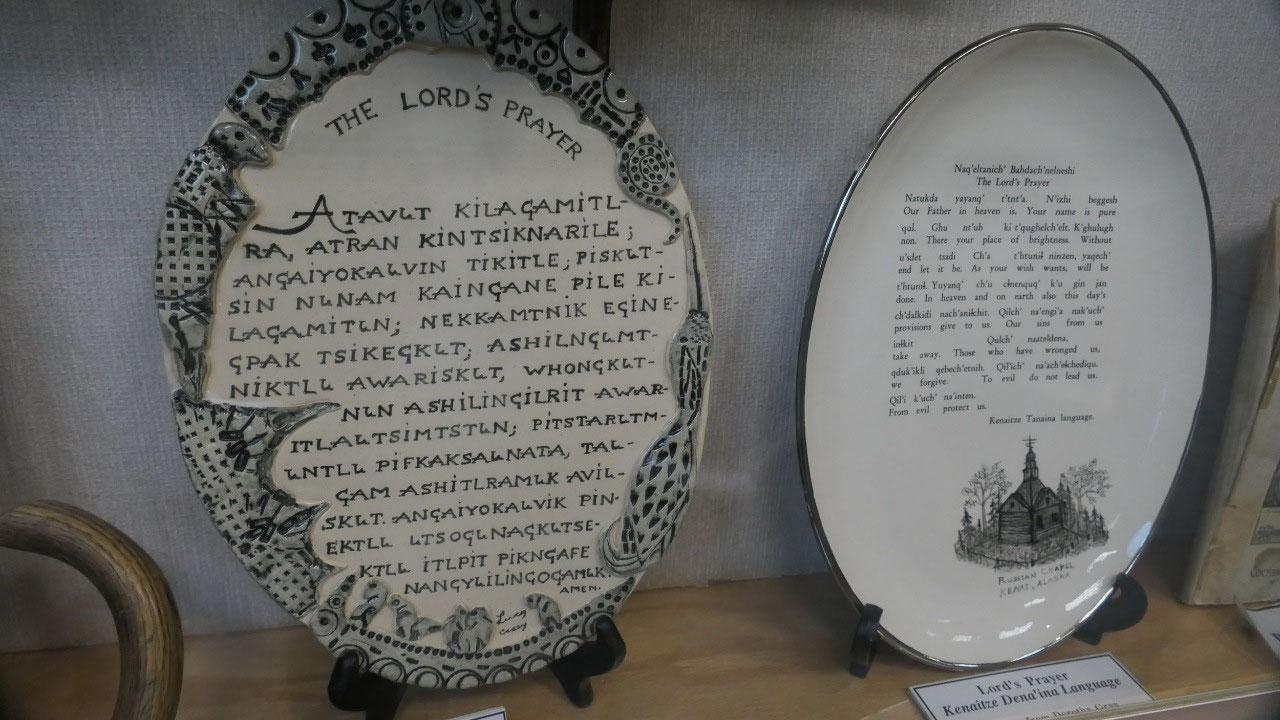 THE LORD'S PRAYER
ATAVUT KILAGAMITL-
RA, ATRAN KINTSIKNARILE;
ANGAIYOKAUVIN TIKITLE; PISKUT-
SIN NUNAM KAINGANE PILE KI-
LAGAMITUN; NEKKAMTNIK EGINE-
GPAK TSIKEGKUT; ASHILNGUMT-
NIKTLU AWARISKUT, WHONGKUT-
NUN ASHILINGILRIT AWAR-
ITLAUTSIMTSTUN; PITSTARUTM-
UNTLU PIFKAKSAUNATA, TAU-
GAM ASHITLRAMUK AVIL-
SKUT. ANGAIYOKAUVIK PIN-
EKTLU UTSOGUNAGKUTSE-
KTLU ITLPIT PIKNGAFE
NANGYUILINGOGAMUK.
AMEN.
Naq'eltanich' Bahdach'nelneshi
The Lord's Prayer
Natukda yayanq' t'tnt'a. N'izhi beggesh
Our Father in heaven is. Your name is pure
qul. Ghu nt'uh ki t'qughelch'elt. K'ghulugh
non. There your place of brightness. Without
u'sdet tsadi Ch'a t'htunił ninzen, yaqech'
end let it be. As your wish wants, will be
t'htunił. Yuyanq' ch'u ełnenquq' k'u gin jan
done. In heaven and on earth also this day's
ch'dalkidi nach'aniłchit. Qilch' na'engi'a nak'uch'
provisions give to us. Our sins from us
iniłkit Qulch' naateldena,
take away. Those who have wronged us,
qduk'idli qebech'etnih. Qil'ich' na'ach'ełchediqu.
we forgive. To evil do not lead us.
Qil'i k'uch' na'inten.
From evil protect us.
Kenaitze Tanaina language.
RUSSIAN CHAPEL
KENAI, ALASKA
Lord's Prayer
Kenaitze Dena'ina Language
from Dorothy Gray